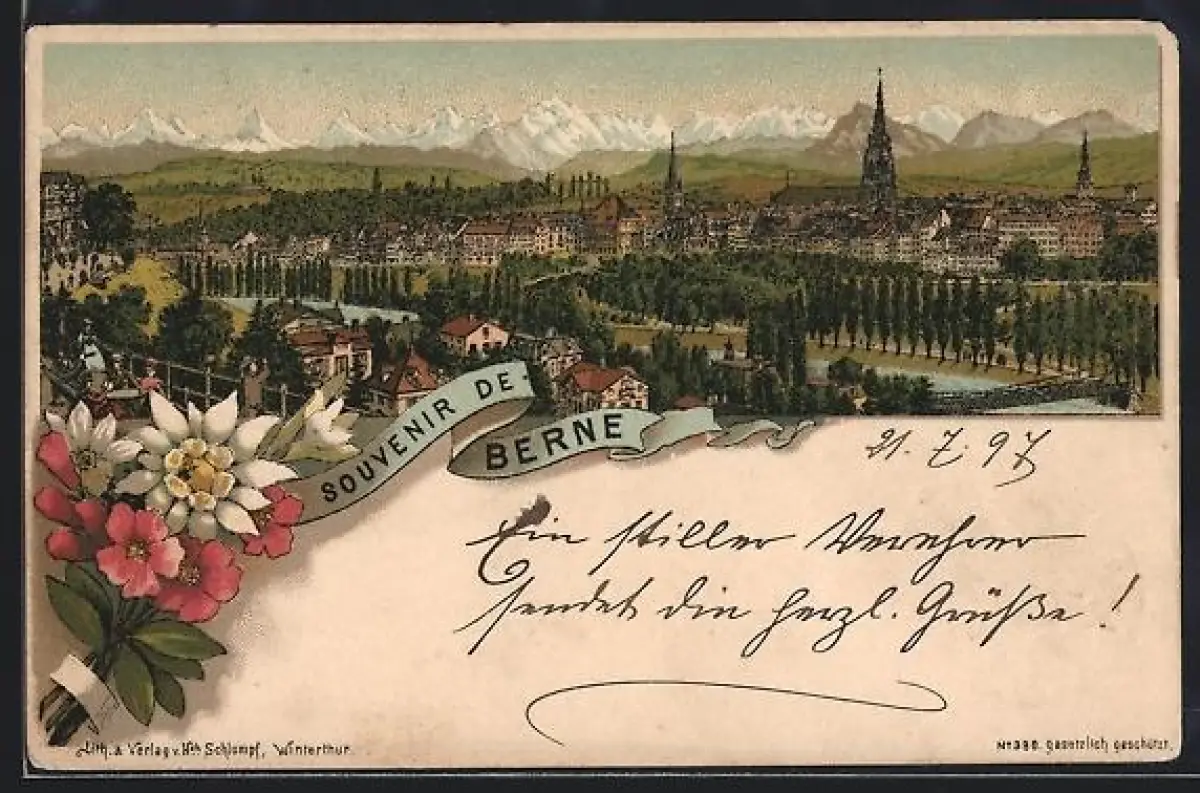 SOUVENIR DE
BERNE
21. 7. 97
Ein stiller Verehrer
sendet die herzl. Grüße!
Lith. & Verlag v. Hch Schlumpf, Winterthur.
No 386. gesetzlich geschützt.